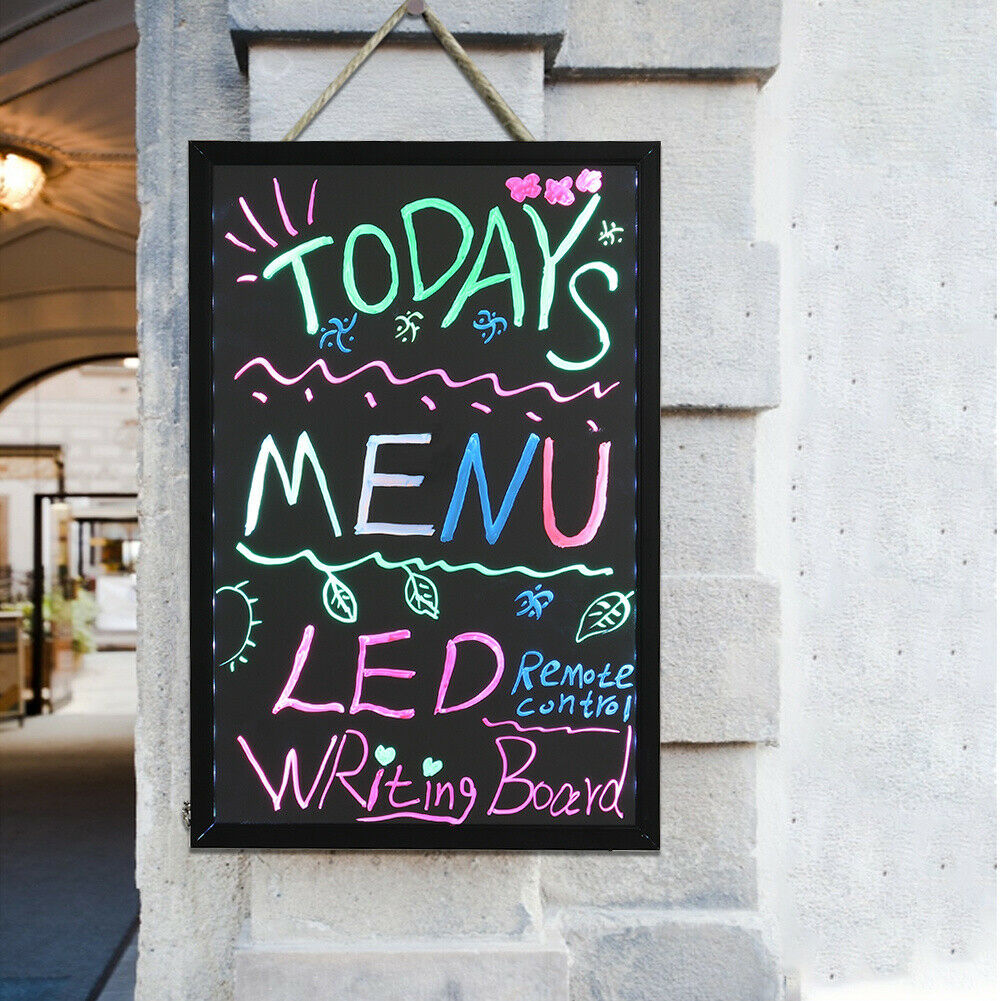 TODAYS
MENU
LED Remote
control
WRiting Board